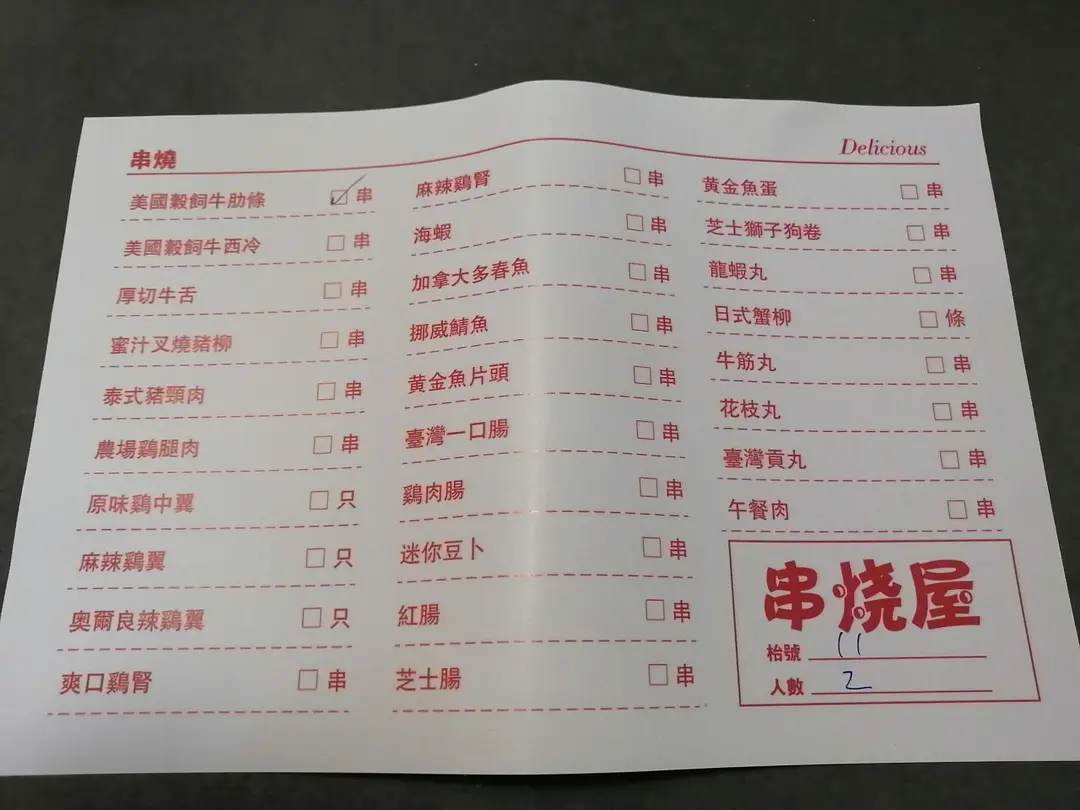 串燒
Delicious
美國穀飼牛肋條 串
美國穀飼牛西冷 串
厚切牛舌 串
蜜汁叉燒豬柳 串
泰式豬頸肉 串
農場鷄腿肉 串
原味鷄中翼 只
麻辣鷄翼 只
奧爾良辣鷄翼 只
爽口鷄腎 串
麻辣鷄腎 串
海蝦 串
加拿大多春魚 串
挪威鯖魚 串
黄金魚片頭 串
臺灣一口腸 串
鷄肉腸 串
迷你豆卜 串
紅腸 串
芝士腸 串
黄金魚蛋 串
芝士獅子狗卷 串
龍蝦丸 串
日式蟹柳 條
牛筋丸 串
花枝丸 串
臺灣貢丸 串
午餐肉 串
串烧屋
枱號 11
人數 2